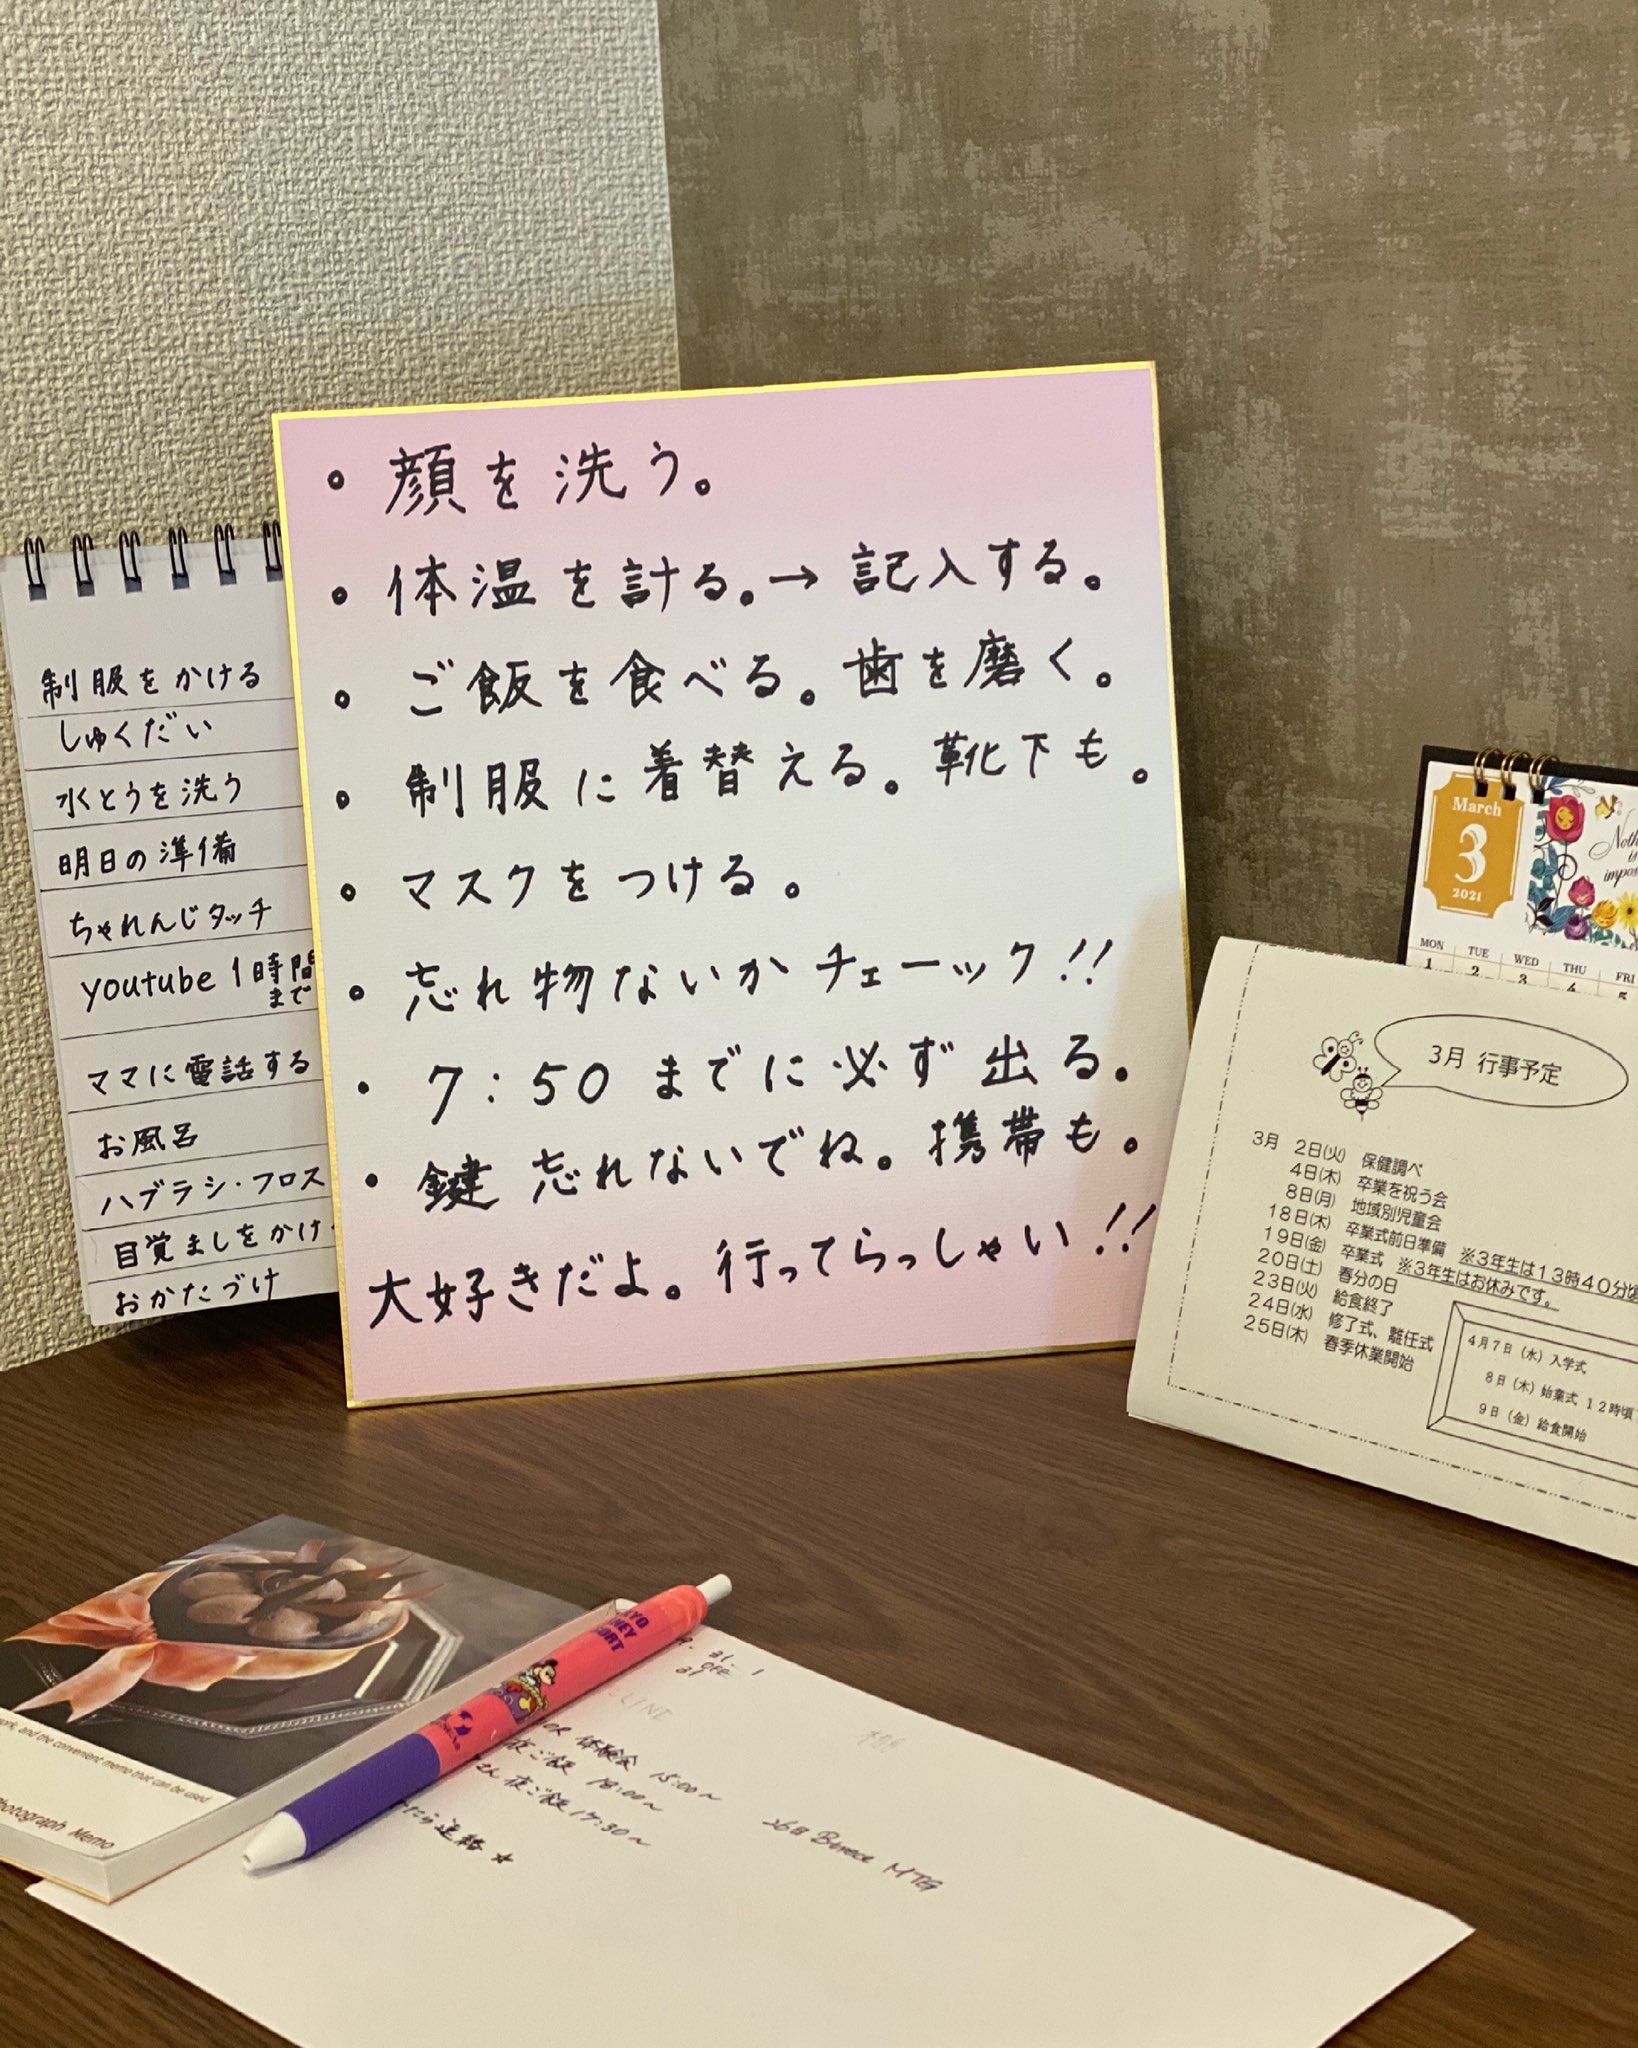 ・顔を洗う。
・体温を計る。→記入する。
・ご飯を食べる。歯を磨く。
・制服に着替える。靴下も。
・マスクをつける。
・忘れ物ないかチェーック!!
・7:50までに必ず出る。
・鍵忘れないでね。携帯も。
大好きだよ。行ってらっしゃい!!
制服をかける
しゅくだい
水とうを洗う
明日の準備
ちゃれんじタッチ
youtube 1時間
まで
ママに電話する
お風呂
ハブラシ・フロス
目覚ましをかけ
おかたづけ
March
3
2021
is
MON TUE WED THU FRI
1 2 3 4 5
3月 行事予定
3月 2日(火) 保健調べ
4日(木) 卒業を祝う会
8日(月) 地域別児童会
18日(木) 卒業式前日準備 ※3年生は13時40分頃
19日(金) 卒業式 ※3年生はお休みです。
20日(土) 春分の日
23日(火) 給食終了
24日(水) 修了式、離任式
25日(木) 春季休業開始
4月7日(水)入学式
8日(木)始業式 12時頃
9日(金)給食開始
and the convenient memo that can be used
Photograph Memo
LINE
体験会 15:00〜
夜ご飯 18:00〜
さん 夜ご飯 17:30〜
たら連絡☆
MTG